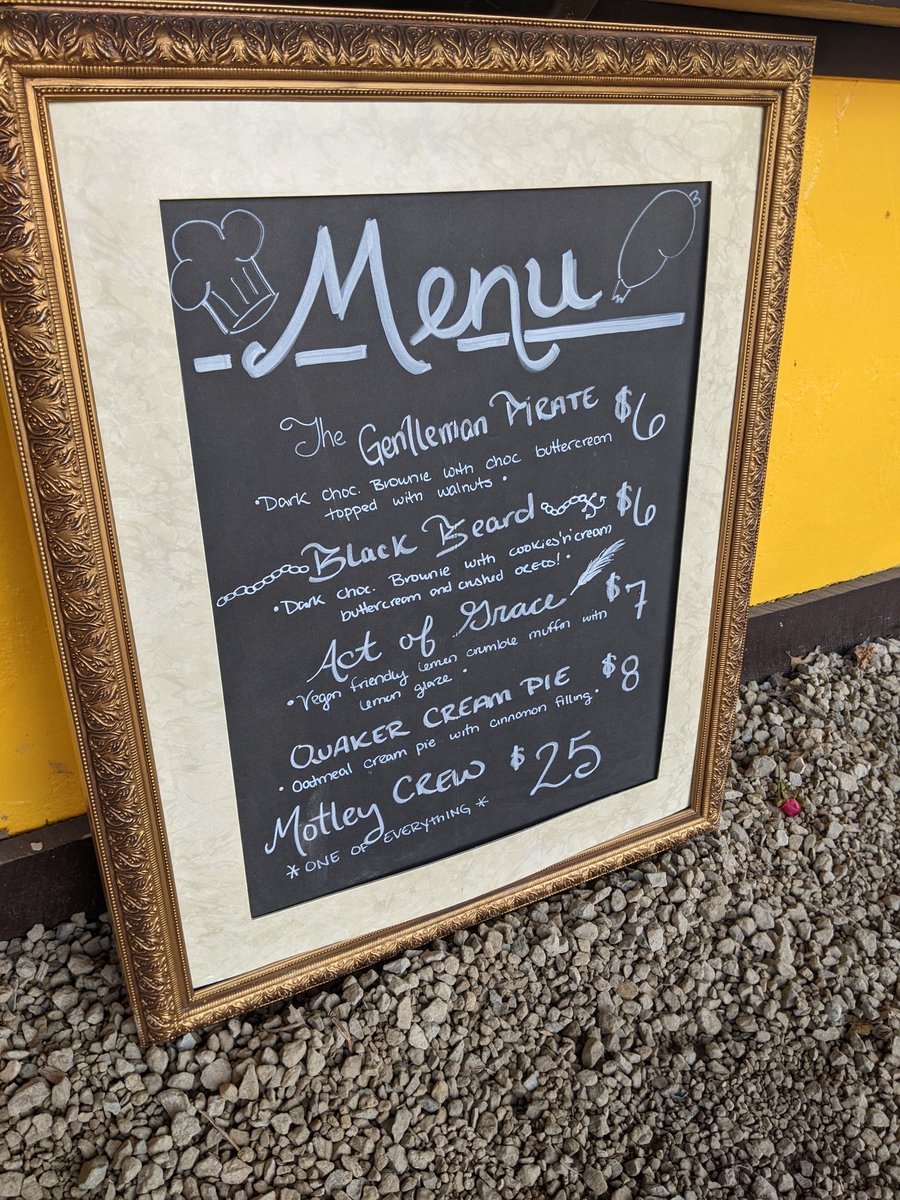 Menu
The Gentleman PIRATE $6
• Dark choc. Brownie with choc buttercream
topped with walnuts •
Black Beard $6
• Dark choc. Brownie with cookies'n'cream
buttercream and crushed OREO! •
Act of Grace $7
• Vegan friendly lemon crumble muffin with
lemon glaze •
QUAKER CREAM PIE $8
• Oatmeal cream pie with cinnamon filling •
Motley CREW $25
* ONE OF EVERYTHING *